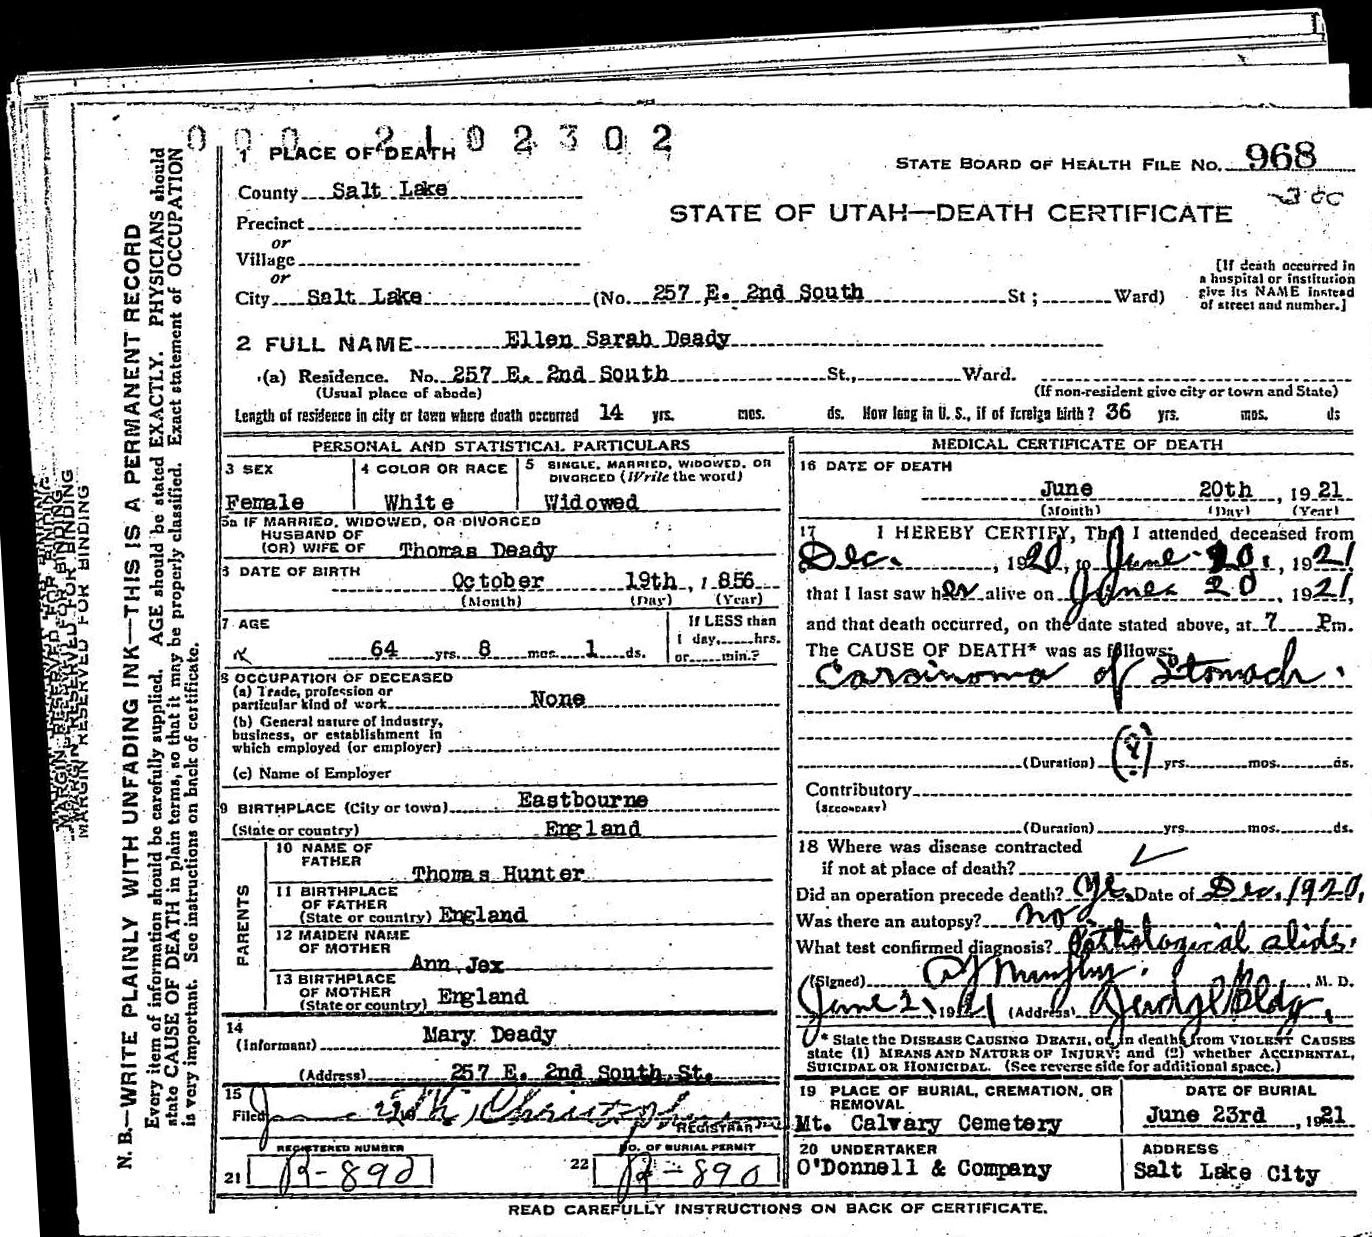 0 0 0 2 1 0 2 3 0 2
STATE BOARD OF HEALTH FILE NO. 968
1 PLACE OF DEATH
County Salt Lake
STATE OF UTAH—DEATH CERTIFICATE
Precinct
or
Village
or
City Salt Lake (No. 257 E. 2nd South St; Ward)
[If death occurred in
a hospital or institution
give its NAME instead
of street and number.]
2 FULL NAME Ellen Sarah Deady
(a) Residence. No. 257 E. 2nd South St., Ward.
(Usual place of abode) (If non-resident give city or town and State)
Length of residence in city or town where death occurred 14 yrs. mos. ds. How long in U. S., if of foreign birth? 36 yrs. mos. ds
PERSONAL AND STATISTICAL PARTICULARS
3 SEX
Female
4 COLOR OR RACE
White
5 SINGLE, MARRIED, WIDOWED, OR
DIVORCED (Write the word)
Widowed
5a IF MARRIED, WIDOWED, OR DIVORCED
HUSBAND OF
(OR) WIFE OF Thomas Deady
6 DATE OF BIRTH
October 19th, 1856
(Month) (Day) (Year)
7 AGE
64 yrs. 8 mos. 1 ds.
If LESS than
1 day, hrs.
or min.?
8 OCCUPATION OF DECEASED
(a) Trade, profession or
particular kind of work None
(b) General nature of industry,
business, or establishment in
which employed (or employer)
(c) Name of Employer
9 BIRTHPLACE (City or town) Eastbourne
(State or country) England
PARENTS
10 NAME OF
FATHER
Thomas Hunter
11 BIRTHPLACE
OF FATHER
(State or country) England
12 MAIDEN NAME
OF MOTHER
Ann Jex
13 BIRTHPLACE
OF MOTHER
(State or country) England
14
(Informant) Mary Deady
(Address) 257 E. 2nd South St.
15
Filed
REGISTRAR
REGISTERED NUMBER
21 B-890
NO. OF BURIAL PERMIT
22 B-890
MEDICAL CERTIFICATE OF DEATH
16 DATE OF DEATH
June 20th, 1921
(Month) (Day) (Year)
17 I HEREBY CERTIFY, That I attended deceased from
Dec., 1920, to June 20, 1921
that I last saw her alive on June 20, 1921,
and that death occurred, on the date stated above, at 7 Pm.
The CAUSE OF DEATH* was as follows:
Carsinoma of Stomach.
(Duration) (?) yrs. mos. ds.
Contributory
(SECONDARY)
(Duration) yrs. mos. ds.
18 Where was disease contracted
if not at place of death?
Did an operation precede death? Yes. Date of Dec. 1920,
Was there an autopsy? no
What test confirmed diagnosis? Pathological slide.
(Signed) Murphy. M. D.
June 21, 1921 (Address) Judge Bldg.
* State the DISEASE CAUSING DEATH, or in deaths from VIOLENT CAUSES
state (1) MEANS AND NATURE OF INJURY; and (2) whether ACCIDENTAL,
SUICIDAL OR HOMICIDAL. (See reverse side for additional space.)
19 PLACE OF BURIAL, CREMATION, OR
REMOVAL
Mt. Calvary Cemetery
DATE OF BURIAL
June 23rd, 1921
20 UNDERTAKER
O'Donnell & Company
ADDRESS
Salt Lake City
READ CAREFULLY INSTRUCTIONS ON BACK OF CERTIFICATE.
MARGIN RESERVED FOR BINDING
N. B.—WRITE PLAINLY WITH UNFADING INK—THIS IS A PERMANENT RECORD
Every item of information should be carefully supplied. AGE should be stated EXACTLY. PHYSICIANS should
state CAUSE OF DEATH in plain terms, so that it may be properly classified. Exact statement of OCCUPATION
is very important. See instructions on back of certificate.